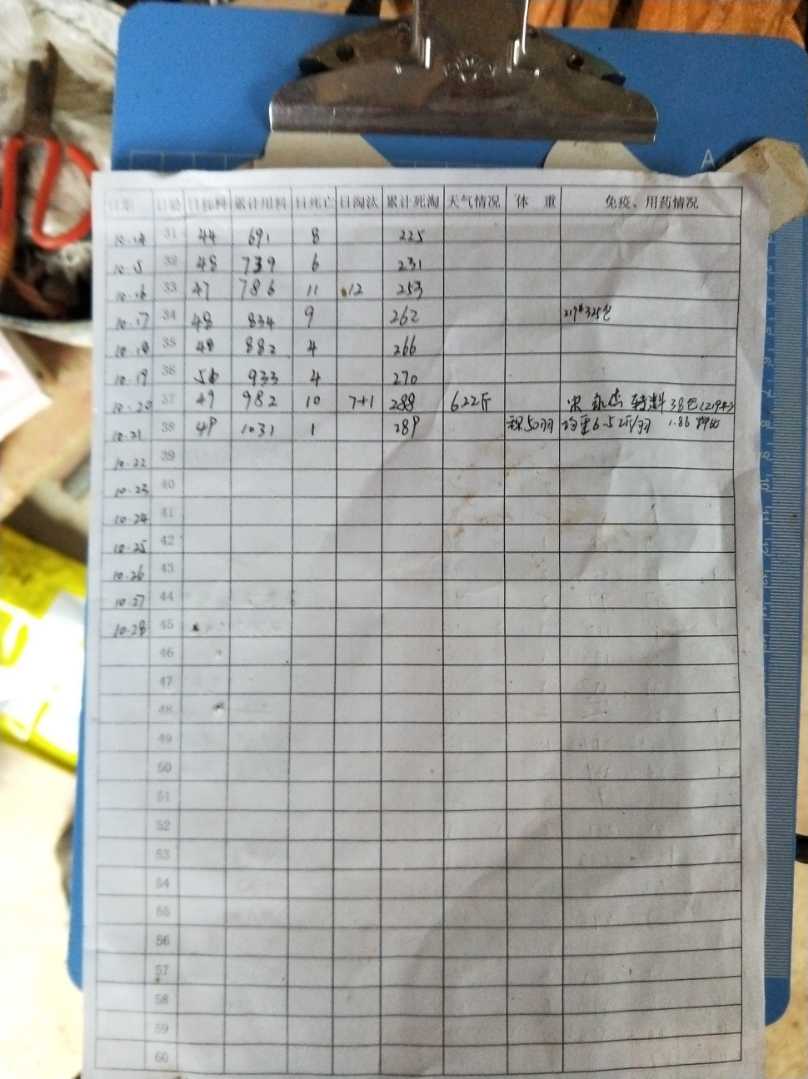 日期 日龄 日耗料 累计用料 日死亡 日淘汰 累计死淘 天气情况 体 重 免疫、用药情况
10.14 31 44 691 8 225
10.15 32 48 739 6 231
10.16 33 47 786 11 12 253
10.17 34 48 834 9 262
10.18 35 48 882 4 266
10.19 36 933 4 270
10.20 37 49 982 10 7+1 288 622斤 转料 38包
10.21 38 49 1031 1 289 称50羽 均重6.52斤/羽 1.86
10.22 39
10.23 40
10.24 41
10.25 42
10.26 43
10.27 44
10.28 45
46
47
48
49
50
51
52
53
54
55
56
57
58
59
60
A